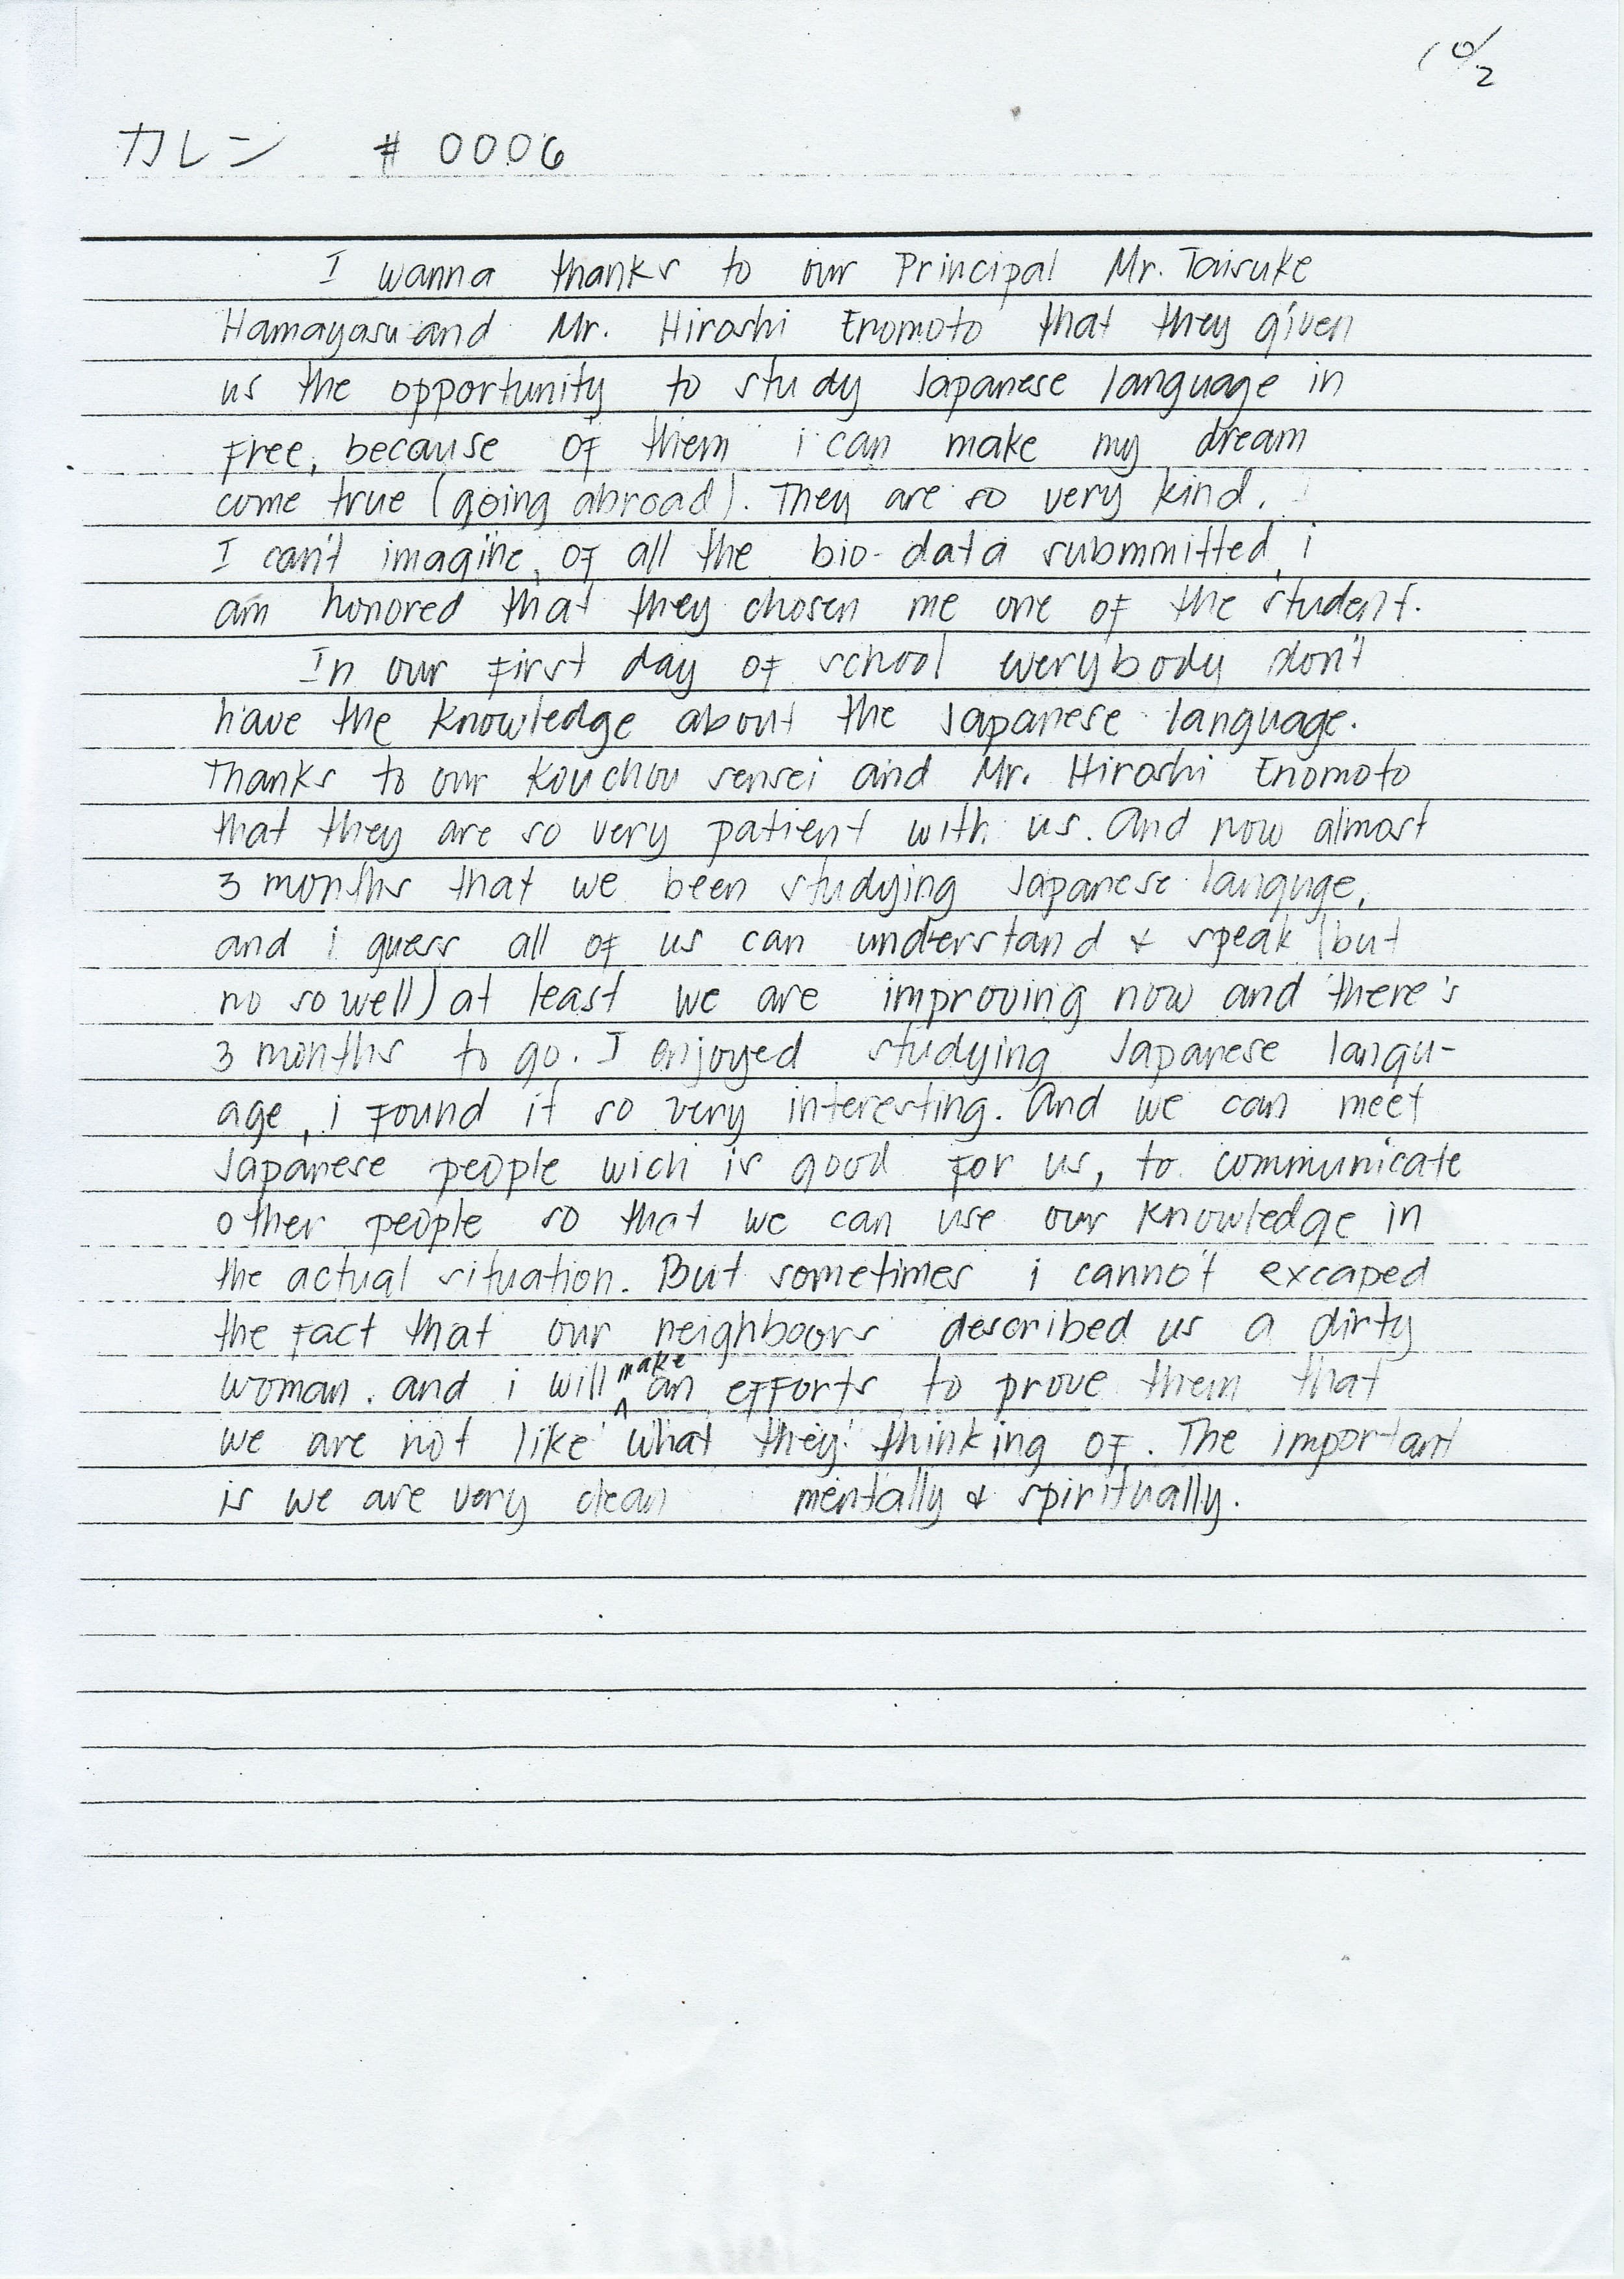 10/2
カレン # 0006
I wanna thanks to our Principal Mr. Taisuke
Hamayasu and Mr. Hiroshi Enomoto that they given
us the opportunity to study Japanese language in
Free, because of them i can make my dream
come true (going abroad). They are so very kind.
I can't imagine, of all the bio-data submmitted, i
am honored that they chosen me one of the student.
In our first day of school everybody don't
have the knowledge about the Japanese language.
Thanks to our Kouchou sensei and Mr. Hiroshi Enomoto
that they are so very patient with us. And now almost
3 months that we been studying Japanese languge,
and i guess all of us can understand & speak (but
no so well) at least we are improving now and there's
3 months to go. I enjoyed studying Japanese langu-
age, i found it so very interesting. And we can meet
Japanese people wich is good for us, to communicate
other people so that we can use our knowledge in
the actual situation. But sometimes i cannot excaped
the fact that our neighboors described us a dirty
woman. and i will make an efforts to prove them that
we are not like what they thinking of. The important
is we are very clean mentally & spiritually.